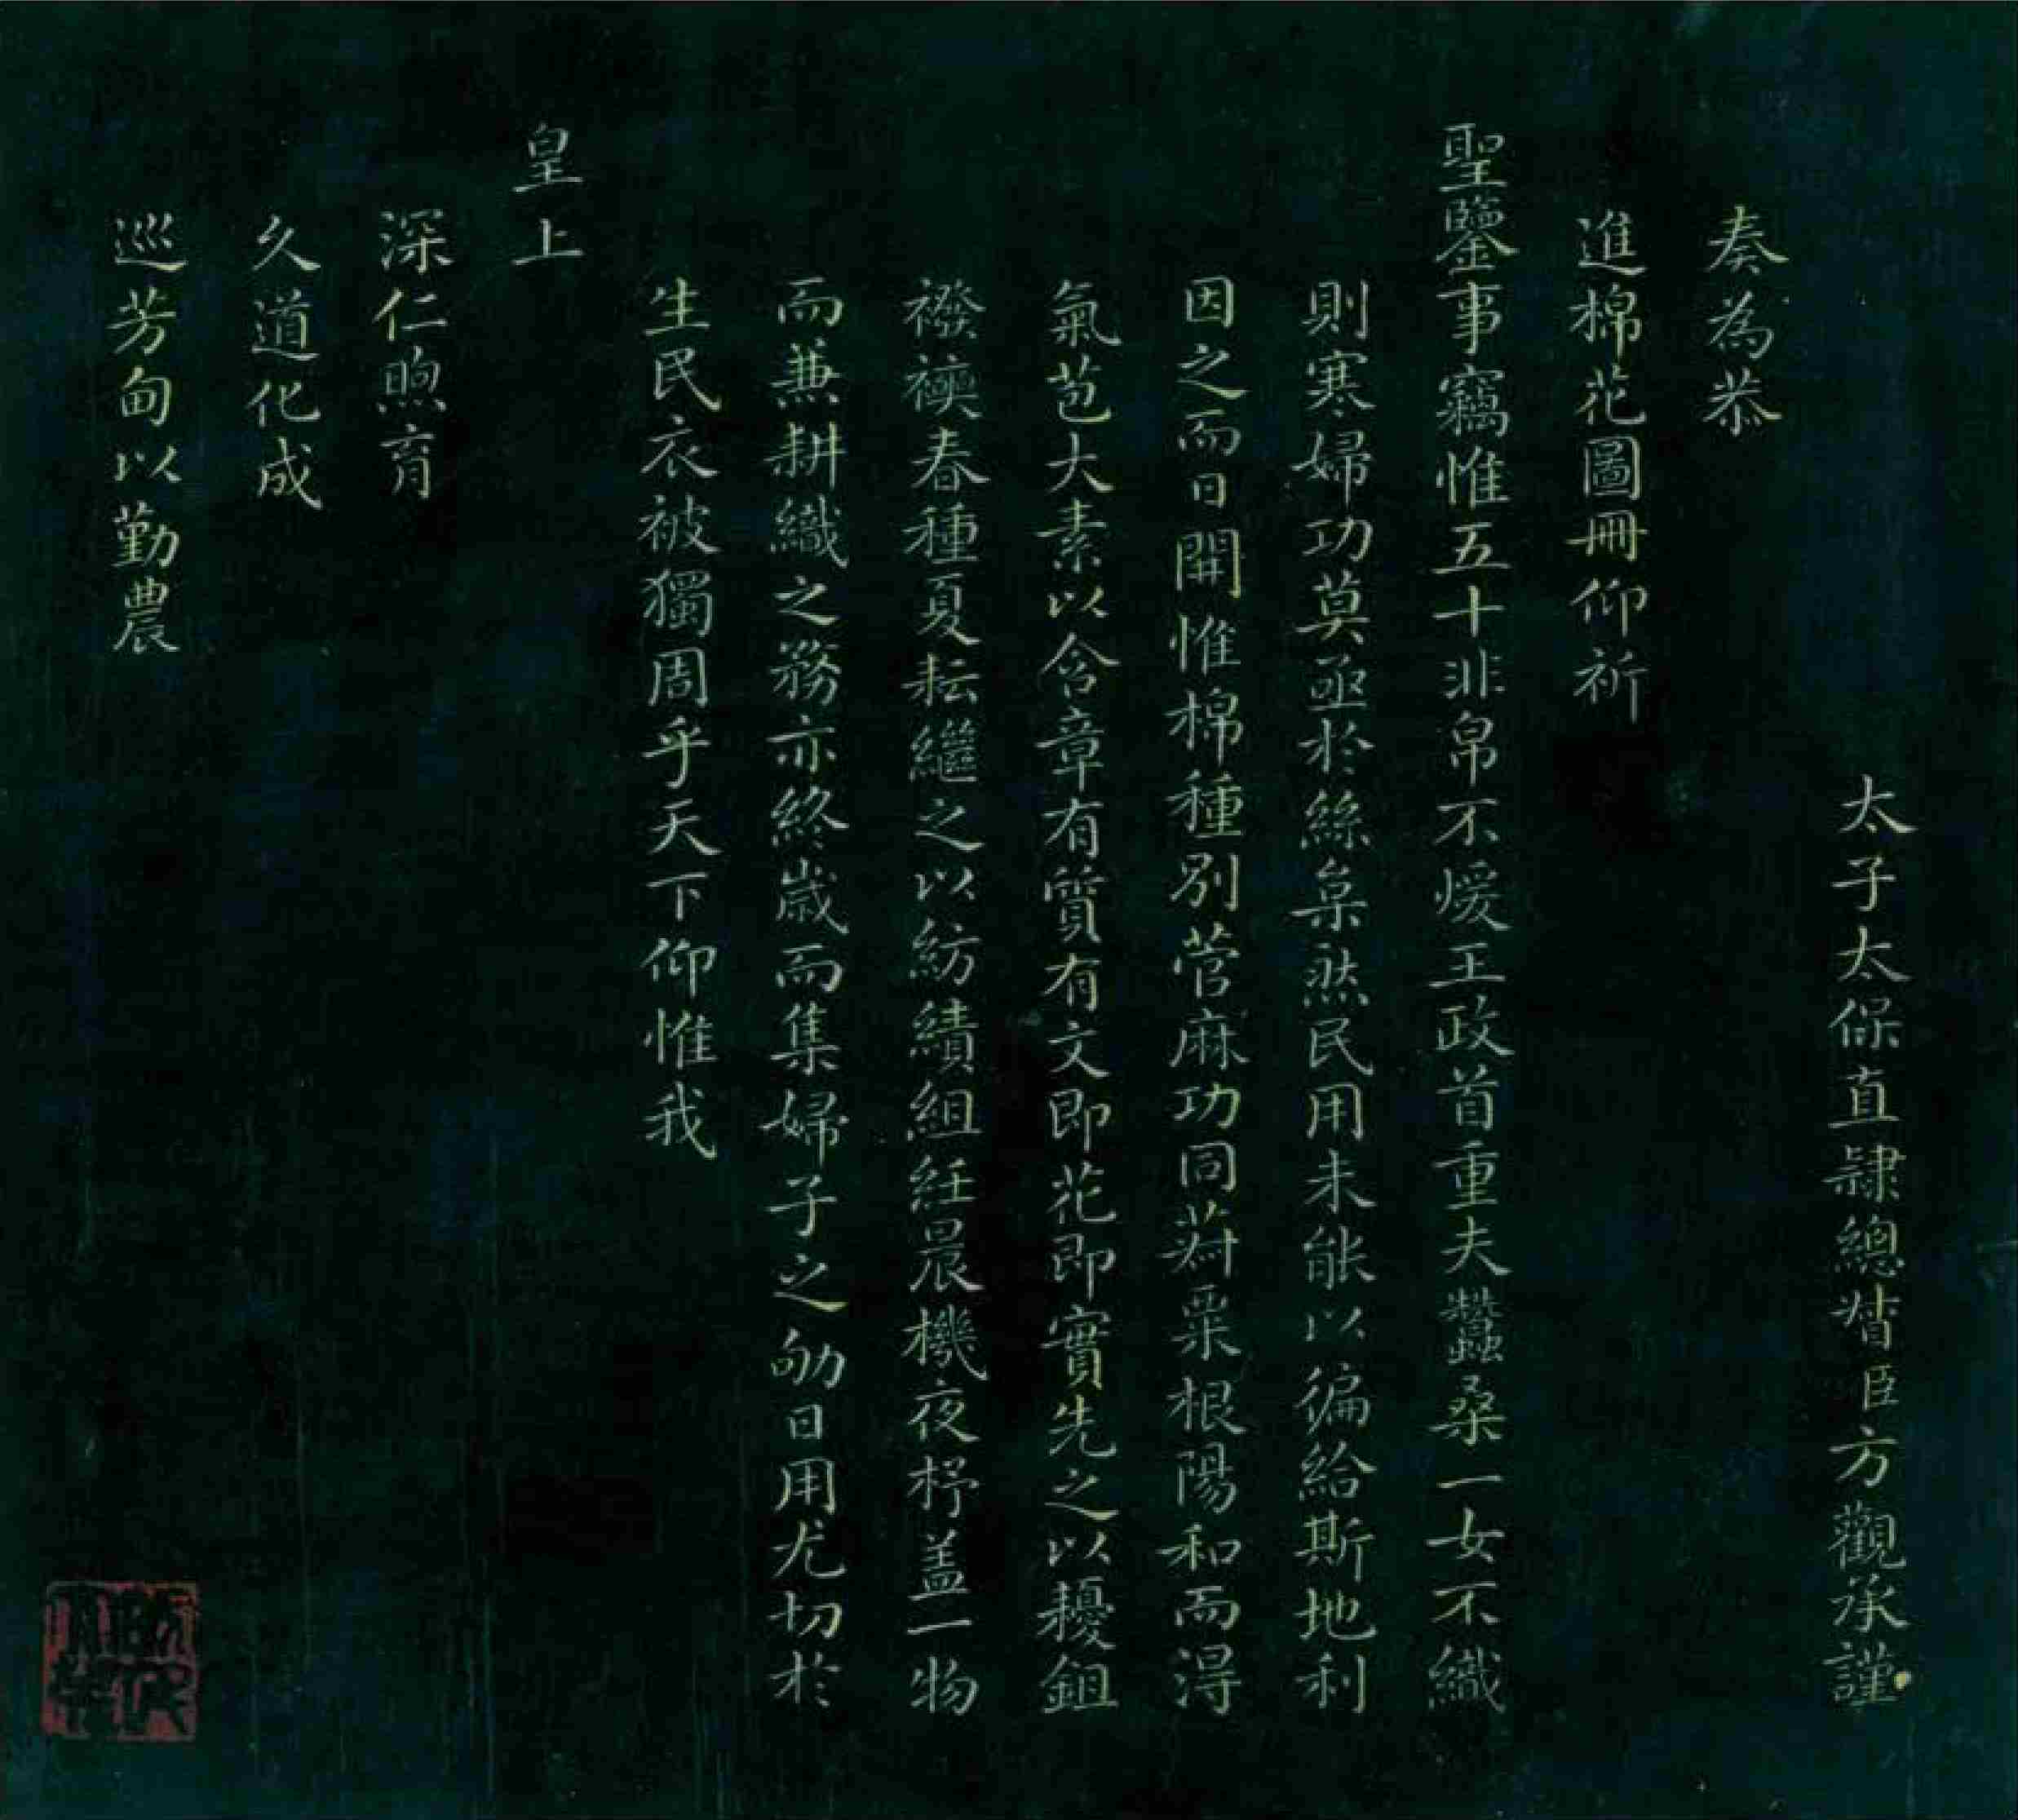 太子太保直隸總督臣方觀承謹
奏為恭
進棉花圖冊仰祈
聖鑒事竊惟五十非帛不煖王政首重夫蠶桑一女不織
則寒婦功莫亟於絲枲然民用未能以徧給斯地利
因之而日開惟棉種別菅麻功同菽粟根陽和而得
氣苞大素以含章有質有文即花即實先之以耰鉏
襏襫春種夏耘繼之以紡績組紝晨機夜杼葢一物
而兼耕織之務亦終歲而集婦子之劬日用尤切於
生民衣被獨周乎天下仰惟我
皇上
深仁煦育
久道化成
巡芳甸以勤農